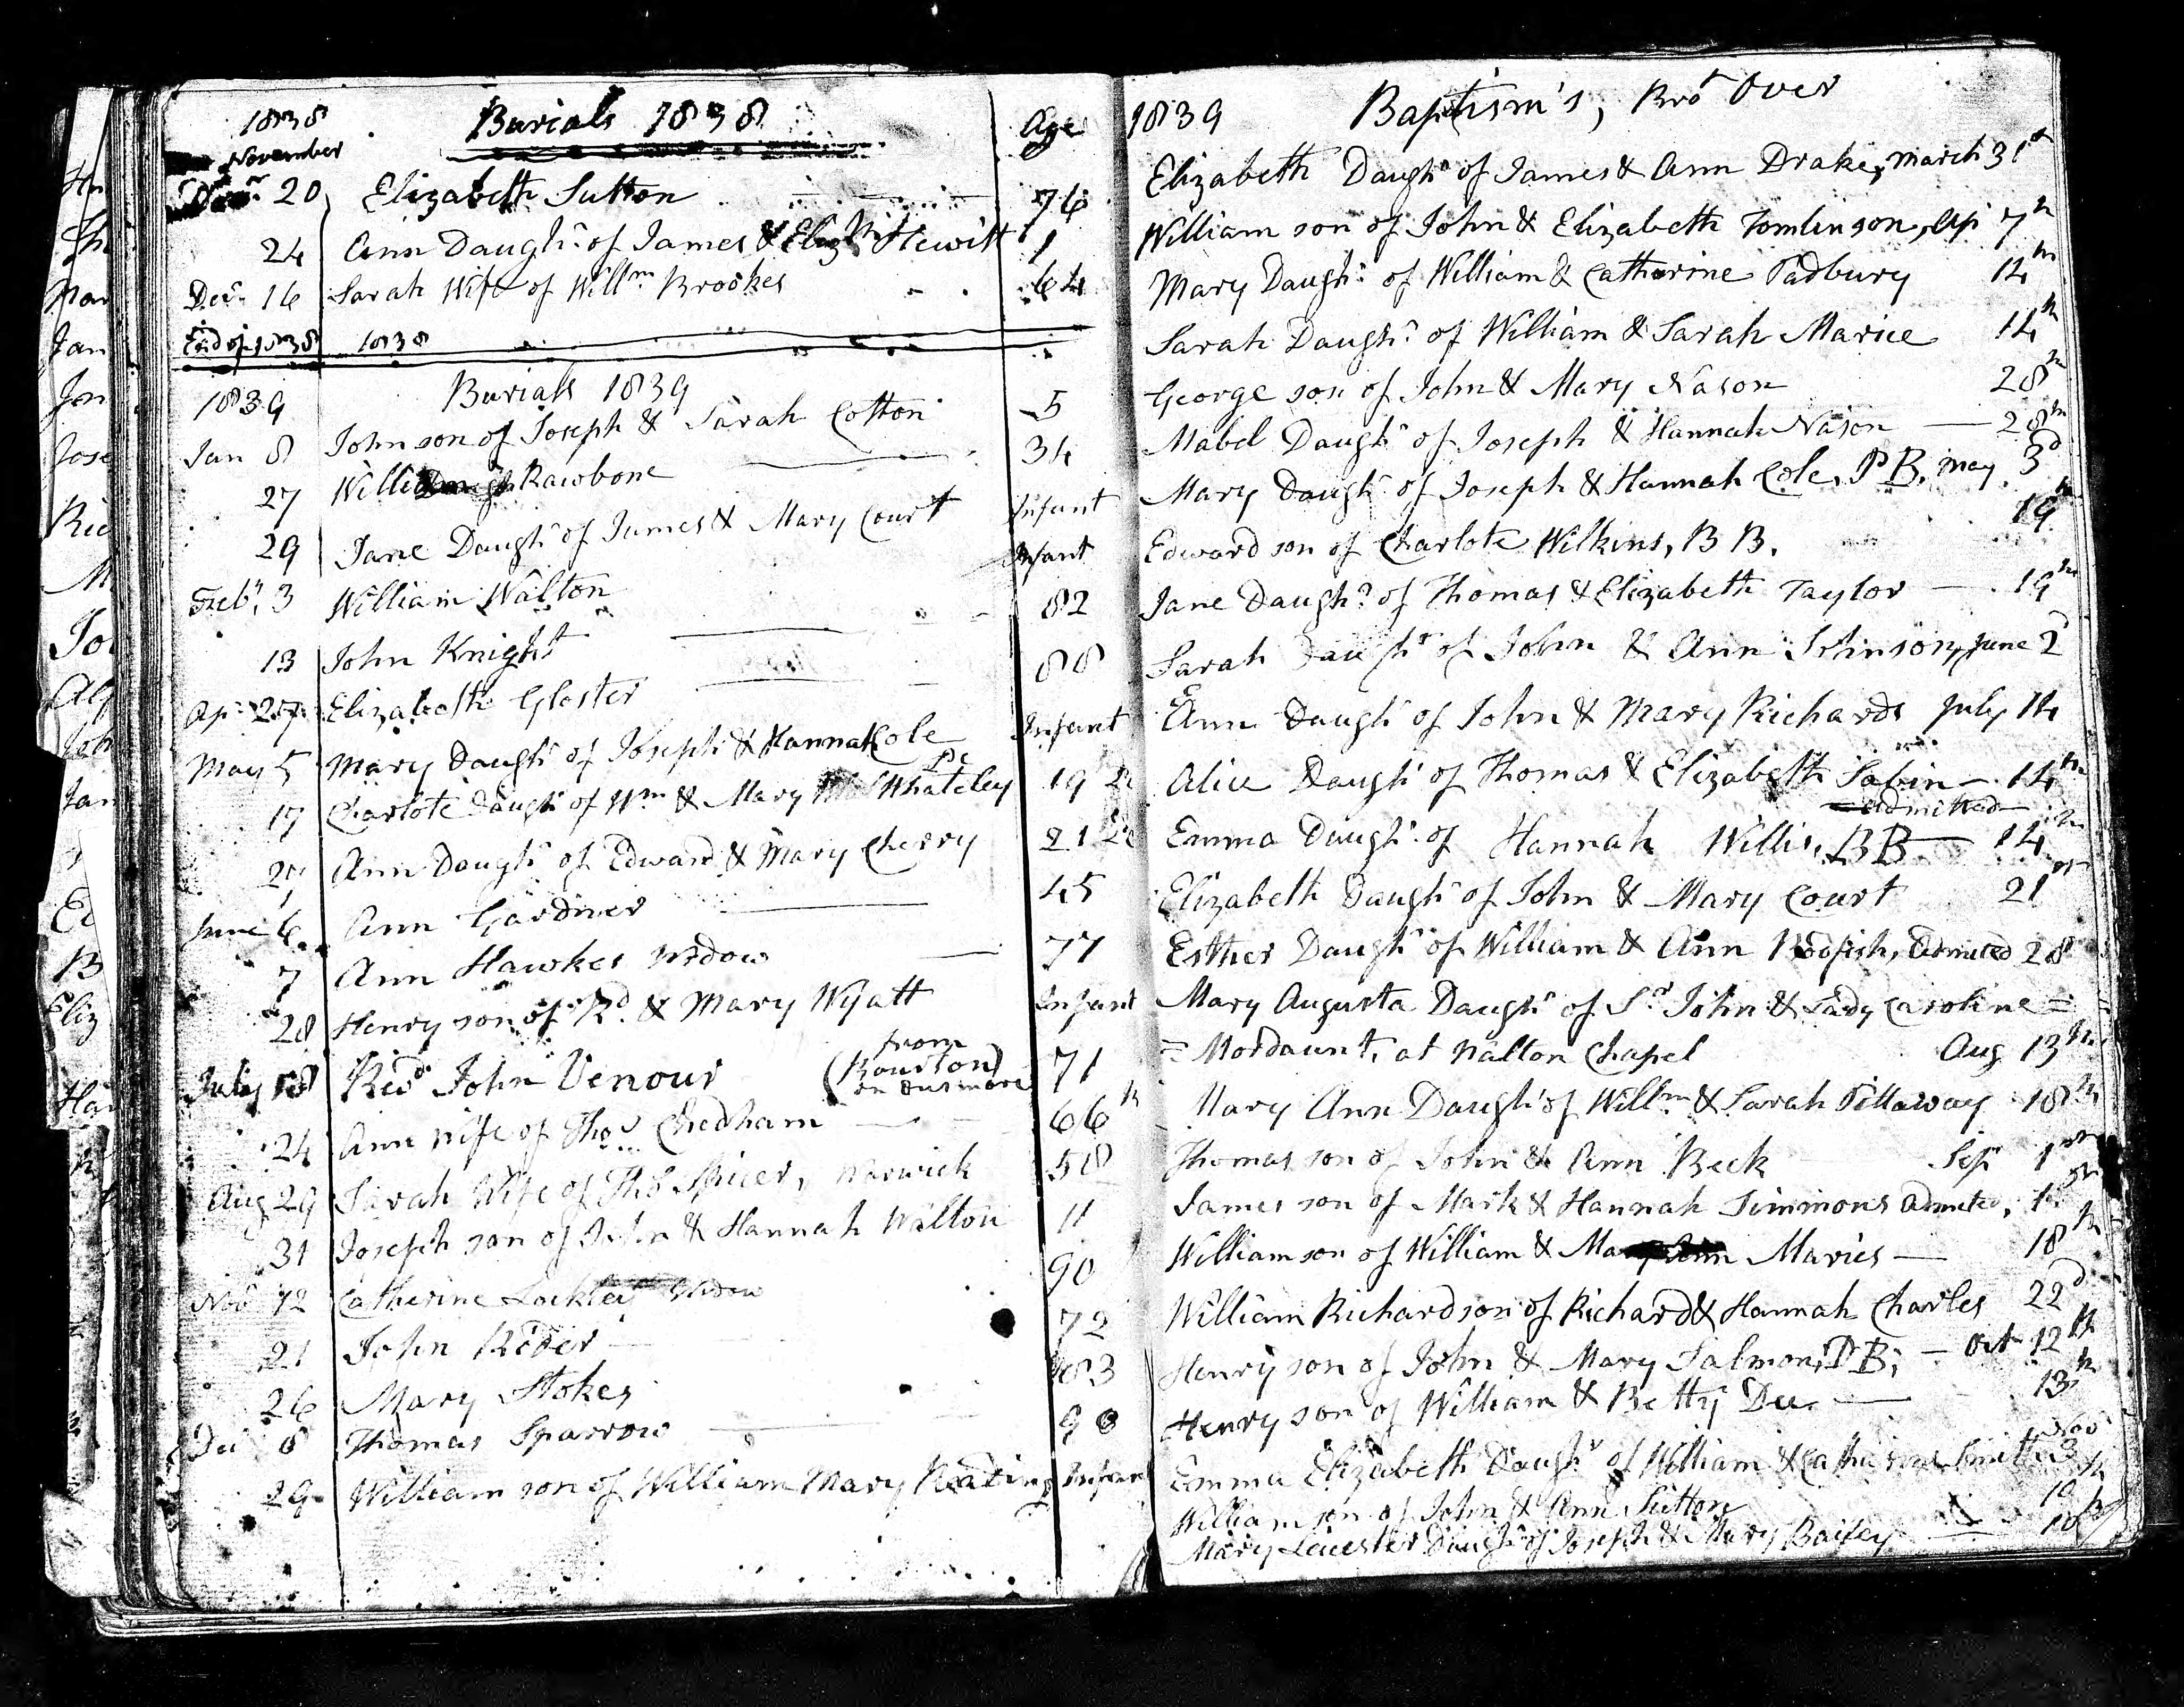 1838 Burials 1838 Age
November
20 Elizabeth Sutton 76
24 Ann Daughr of James & Hewitt 1
Decr 16 Sarah Wife of Willm Brookes 64
End of 1838 1838
1839 Burials 1839
Jan 8 John son of Joseph & Sarah Cotton 5
27 William Rawbone 34
29 Jane Daughr of James & Mary Court Infant
Infant
Feby 3 William Walton 82
13 John Knight 88
Ap 27 Elizabeth Gloster
May 5 Mary Daughr of Joseph & Hannah Cole Infant
17 Charlote Daughr of Wm & Mary Whateley 19
27 Ann Daughr of Edward & Mary Cherry 21
June 6 Ann Gardner 45
7 Ann Hawkes Widow 77
28 Henry son of Rd & Mary Wyatt Infant
July 18 Revd John Venour (from Bourton on Dusmore) 71
24 Ann Wife of Thos Chedham 66
Aug 29 Sarah Wife of Thos Spicer, Warwick 58
31 Joseph son of John & Hannah Walton 11
Nov 12 Catherine Widow 90
21 John Rider 72
26 Mary Stokes 83
Dec 8 Thomas Sparrow 90
29 William son of William Mary Keating Infant
1839 Baptism's, Brot Over
Elizabeth Daughr of James & Ann Drake, March 31st
William son of John & Elizabeth Tomlinson, Ap 7th
Mary Daughr of William & Catherine Padbury 14th
Sarah Daughr of William & Sarah Marice 14th
George son of John & Mary Nason 28th
Mabel Daughr of Joseph & Hannah Nason 28th
Mary Daughr of Joseph & Hannah Cole, P B, May 3d
Edward son of Charlote Wilkins, B B. 19th
Jane Daughr of Thomas & Elizabeth Taylor 19th
Sarah Daughr of John & Ann Johnson, June 2d
Ann Daughr of John & Mary Richards July 14
Alice Daughr of Thomas & Elizabeth Sabin 14th
admitted
Emma Daughr of Hannah Willis, BB 14th
Elizabeth Daughr of John & Mary Court 21st
Esther Daughr of William & Ann Rodfish, Admited 28
Mary Augusta Daughr of Sr John & Lady Caroline =
= Mordaunt, at Walton Chapel Aug 13th
Mary Ann Daughr of Willm & Sarah Pittaway 18th
Thomas son of John & Ann Beck Sep 1st
James son of Mark & Hannah Simmons Admited, 1st
William son of William & Mary Maries 18th
William Richard son of Richard & Hannah Charles 22d
Henry son of John & Mary Salmon, P B, Oct 12th
Henry son of William & Betty Dee 13th
Nov
Emma Elizabeth Daughr of William & Catherine Smith 3
William son of John & Ann Sutton 10th
Mary Leicester Daughr of Joseph & Mary Bailey 10th